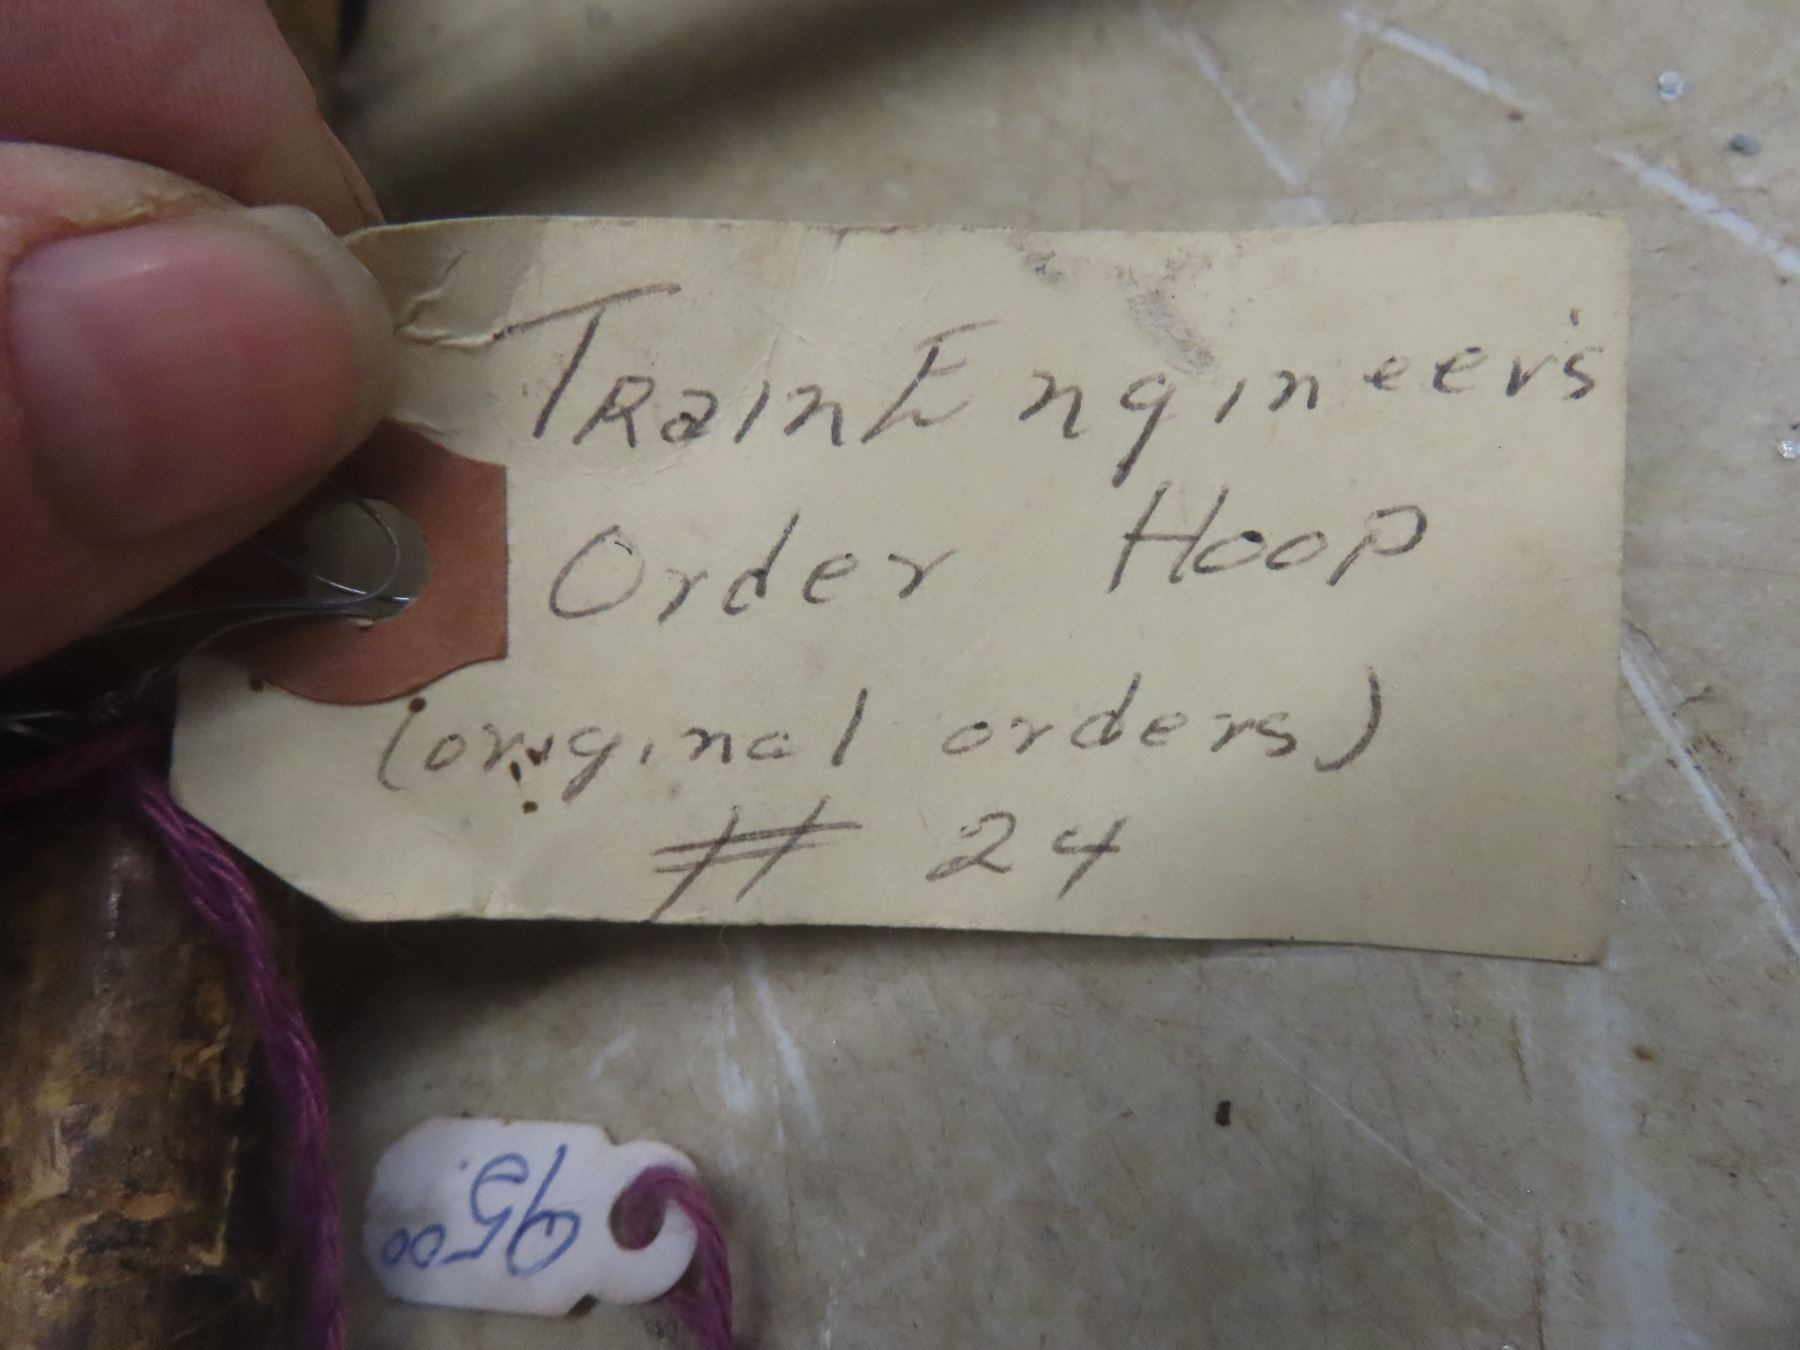 Train Engineer's
Order Hoop
(original orders)
# 24
95.00